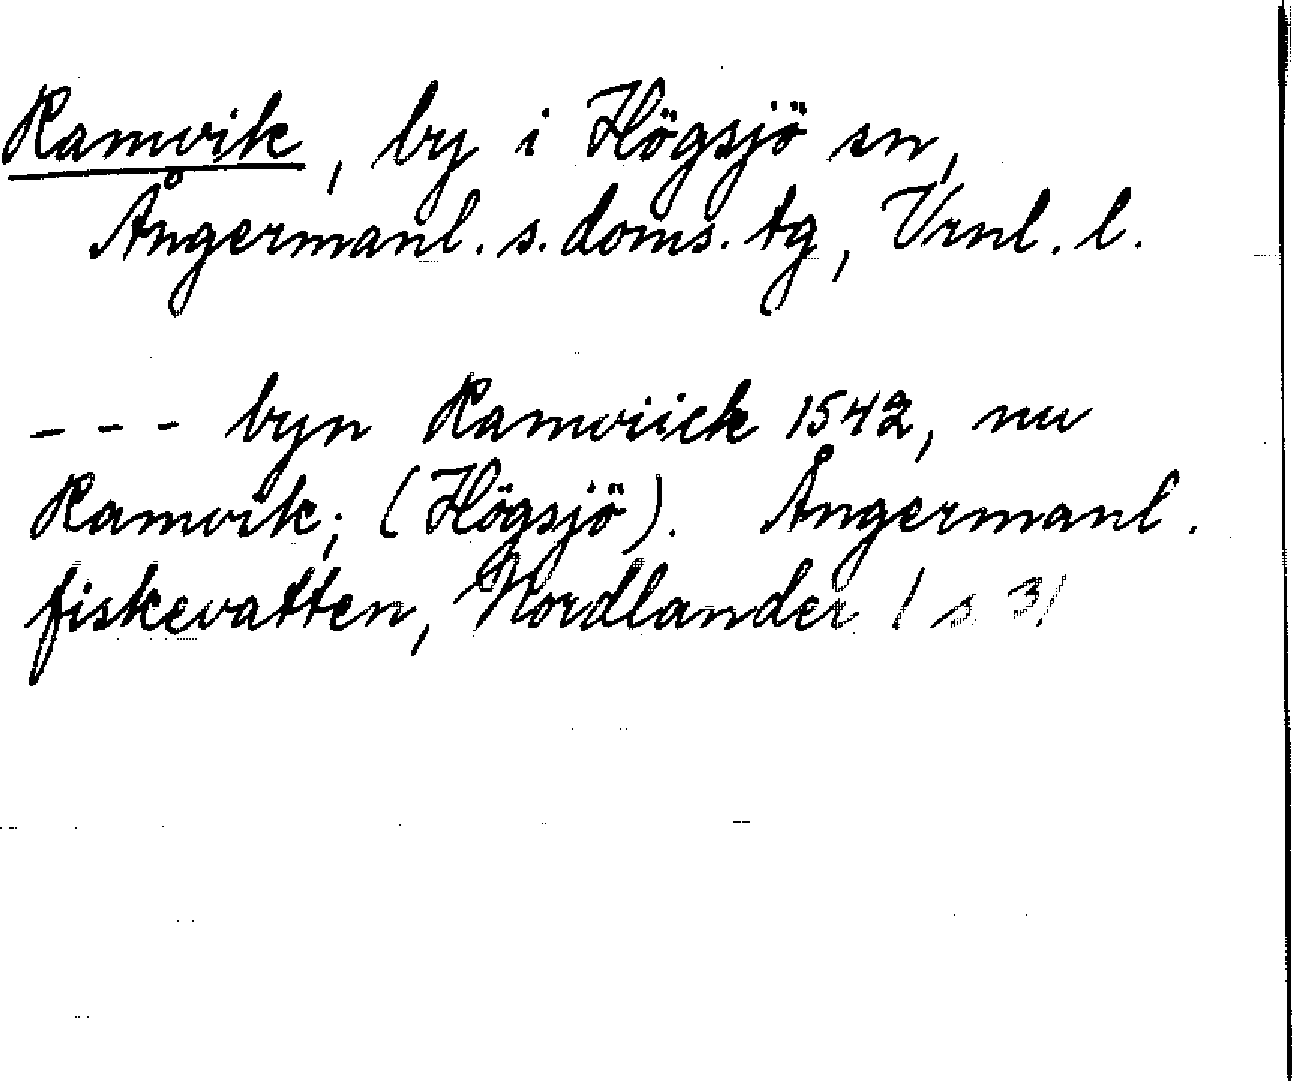 Ramvik, by i Högsjö sn,
Ångermanl. s. doms. tg, Vrnl. l.
--- byn Ramwiick 1542, nu
Ramvik; (Högsjö). Ångermanl.
fiskevatten, Nordlander / s 3/